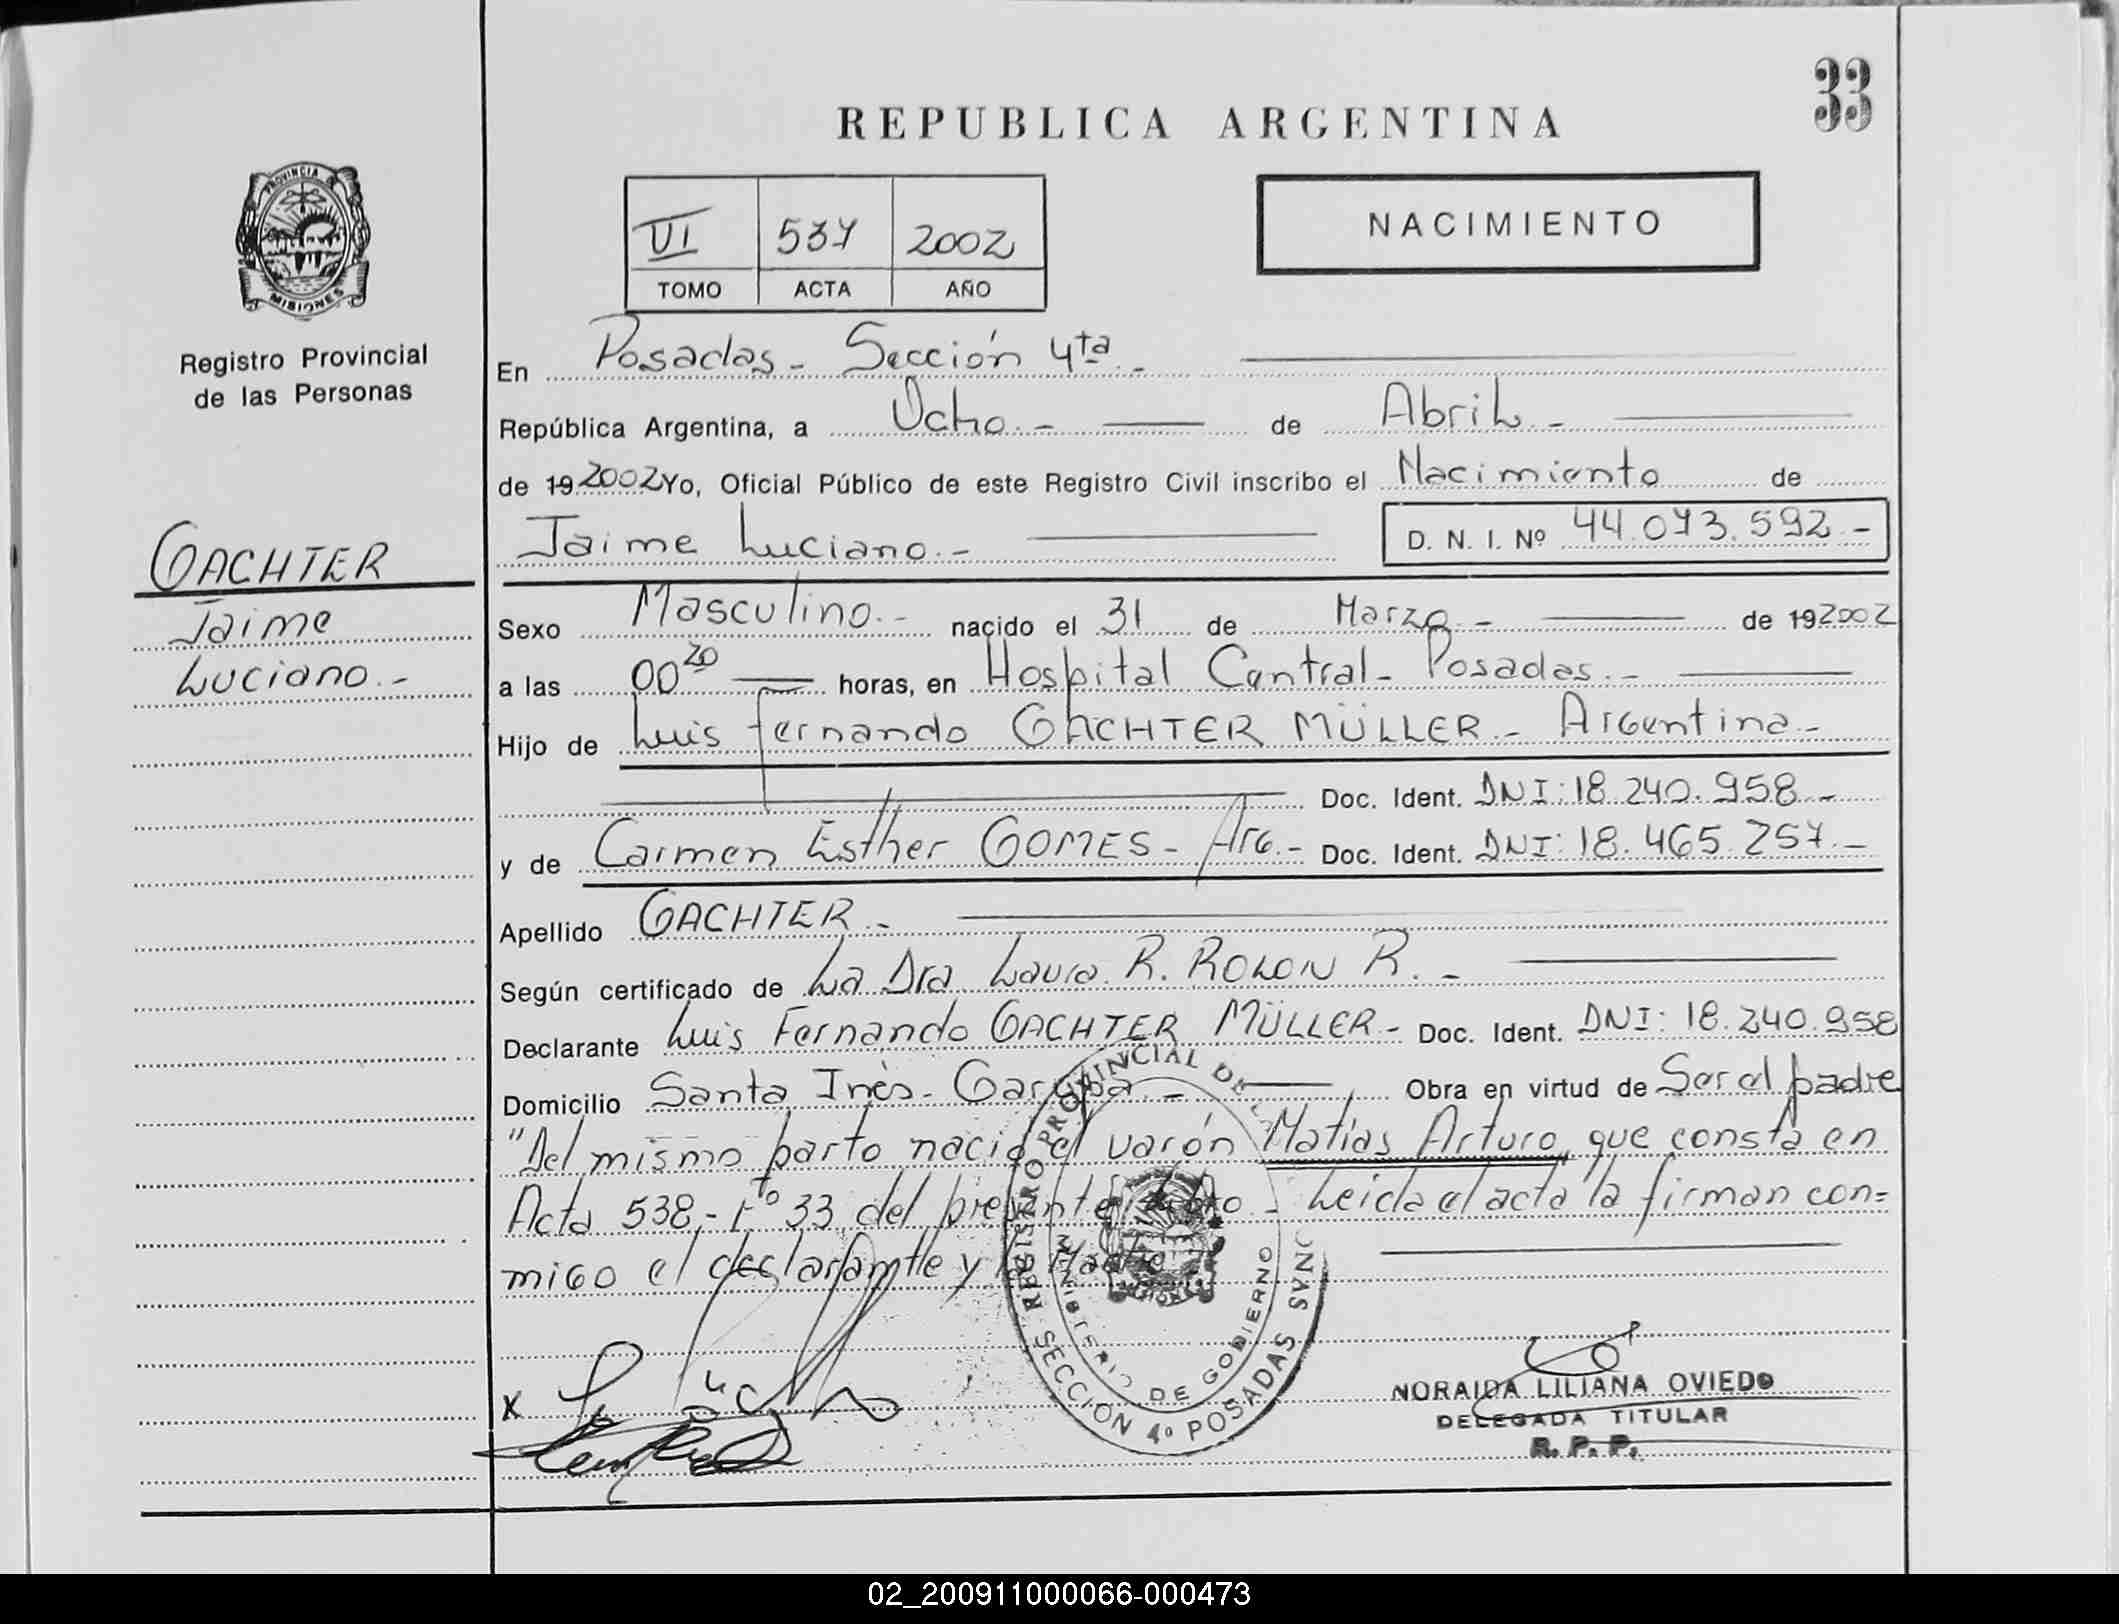 33
REPUBLICA ARGENTINA
PROVINCIA DE
MISIONES
VI 537 2002
TOMO ACTA AÑO
NACIMIENTO
Registro Provincial
de las Personas
GACHTER
Jaime
Luciano.-
En Posadas - Sección 4ta -
República Argentina, a Ocho.- de Abril.-
de 19 2002 Yo, Oficial Público de este Registro Civil inscribo el Nacimiento de
Jaime Luciano.- D. N. I. Nº 44.073.592.-
Sexo Masculino.- nacido el 31 de Marzo.- de 19 2002
a las 00 20 horas, en Hospital Central - Posadas.-
Hijo de Luis Fernando GACHTER MÜLLER - Argentina -
Doc. Ident. DNI: 18.240.958.-
y de Carmen Esther GOMES - Arg.- Doc. Ident. DNI: 18.465.257.-
Apellido GACHTER -
Según certificado de La Dra Laura R. ROLON R. -
Declarante Luis Fernando GACHTER MÜLLER - Doc. Ident. DNI: 18.240.958
Domicilio Santa Inés - Garupá - Obra en virtud de Ser el padre
"Del mismo parto nació el varón Matías Arturo, que consta en
Acta 538 - Fº 33 del presente Libro - Leida el acta la firman con=
migo el declarante y la Madre
X
REGISTRO PROVINCIAL DE
MINISTERIO DE GOBIERNO
SECCION 4º POSADAS
NORAIDA LILIANA OVIEDO
DELEGADA TITULAR
R. P. P.
02_200911000066-000473